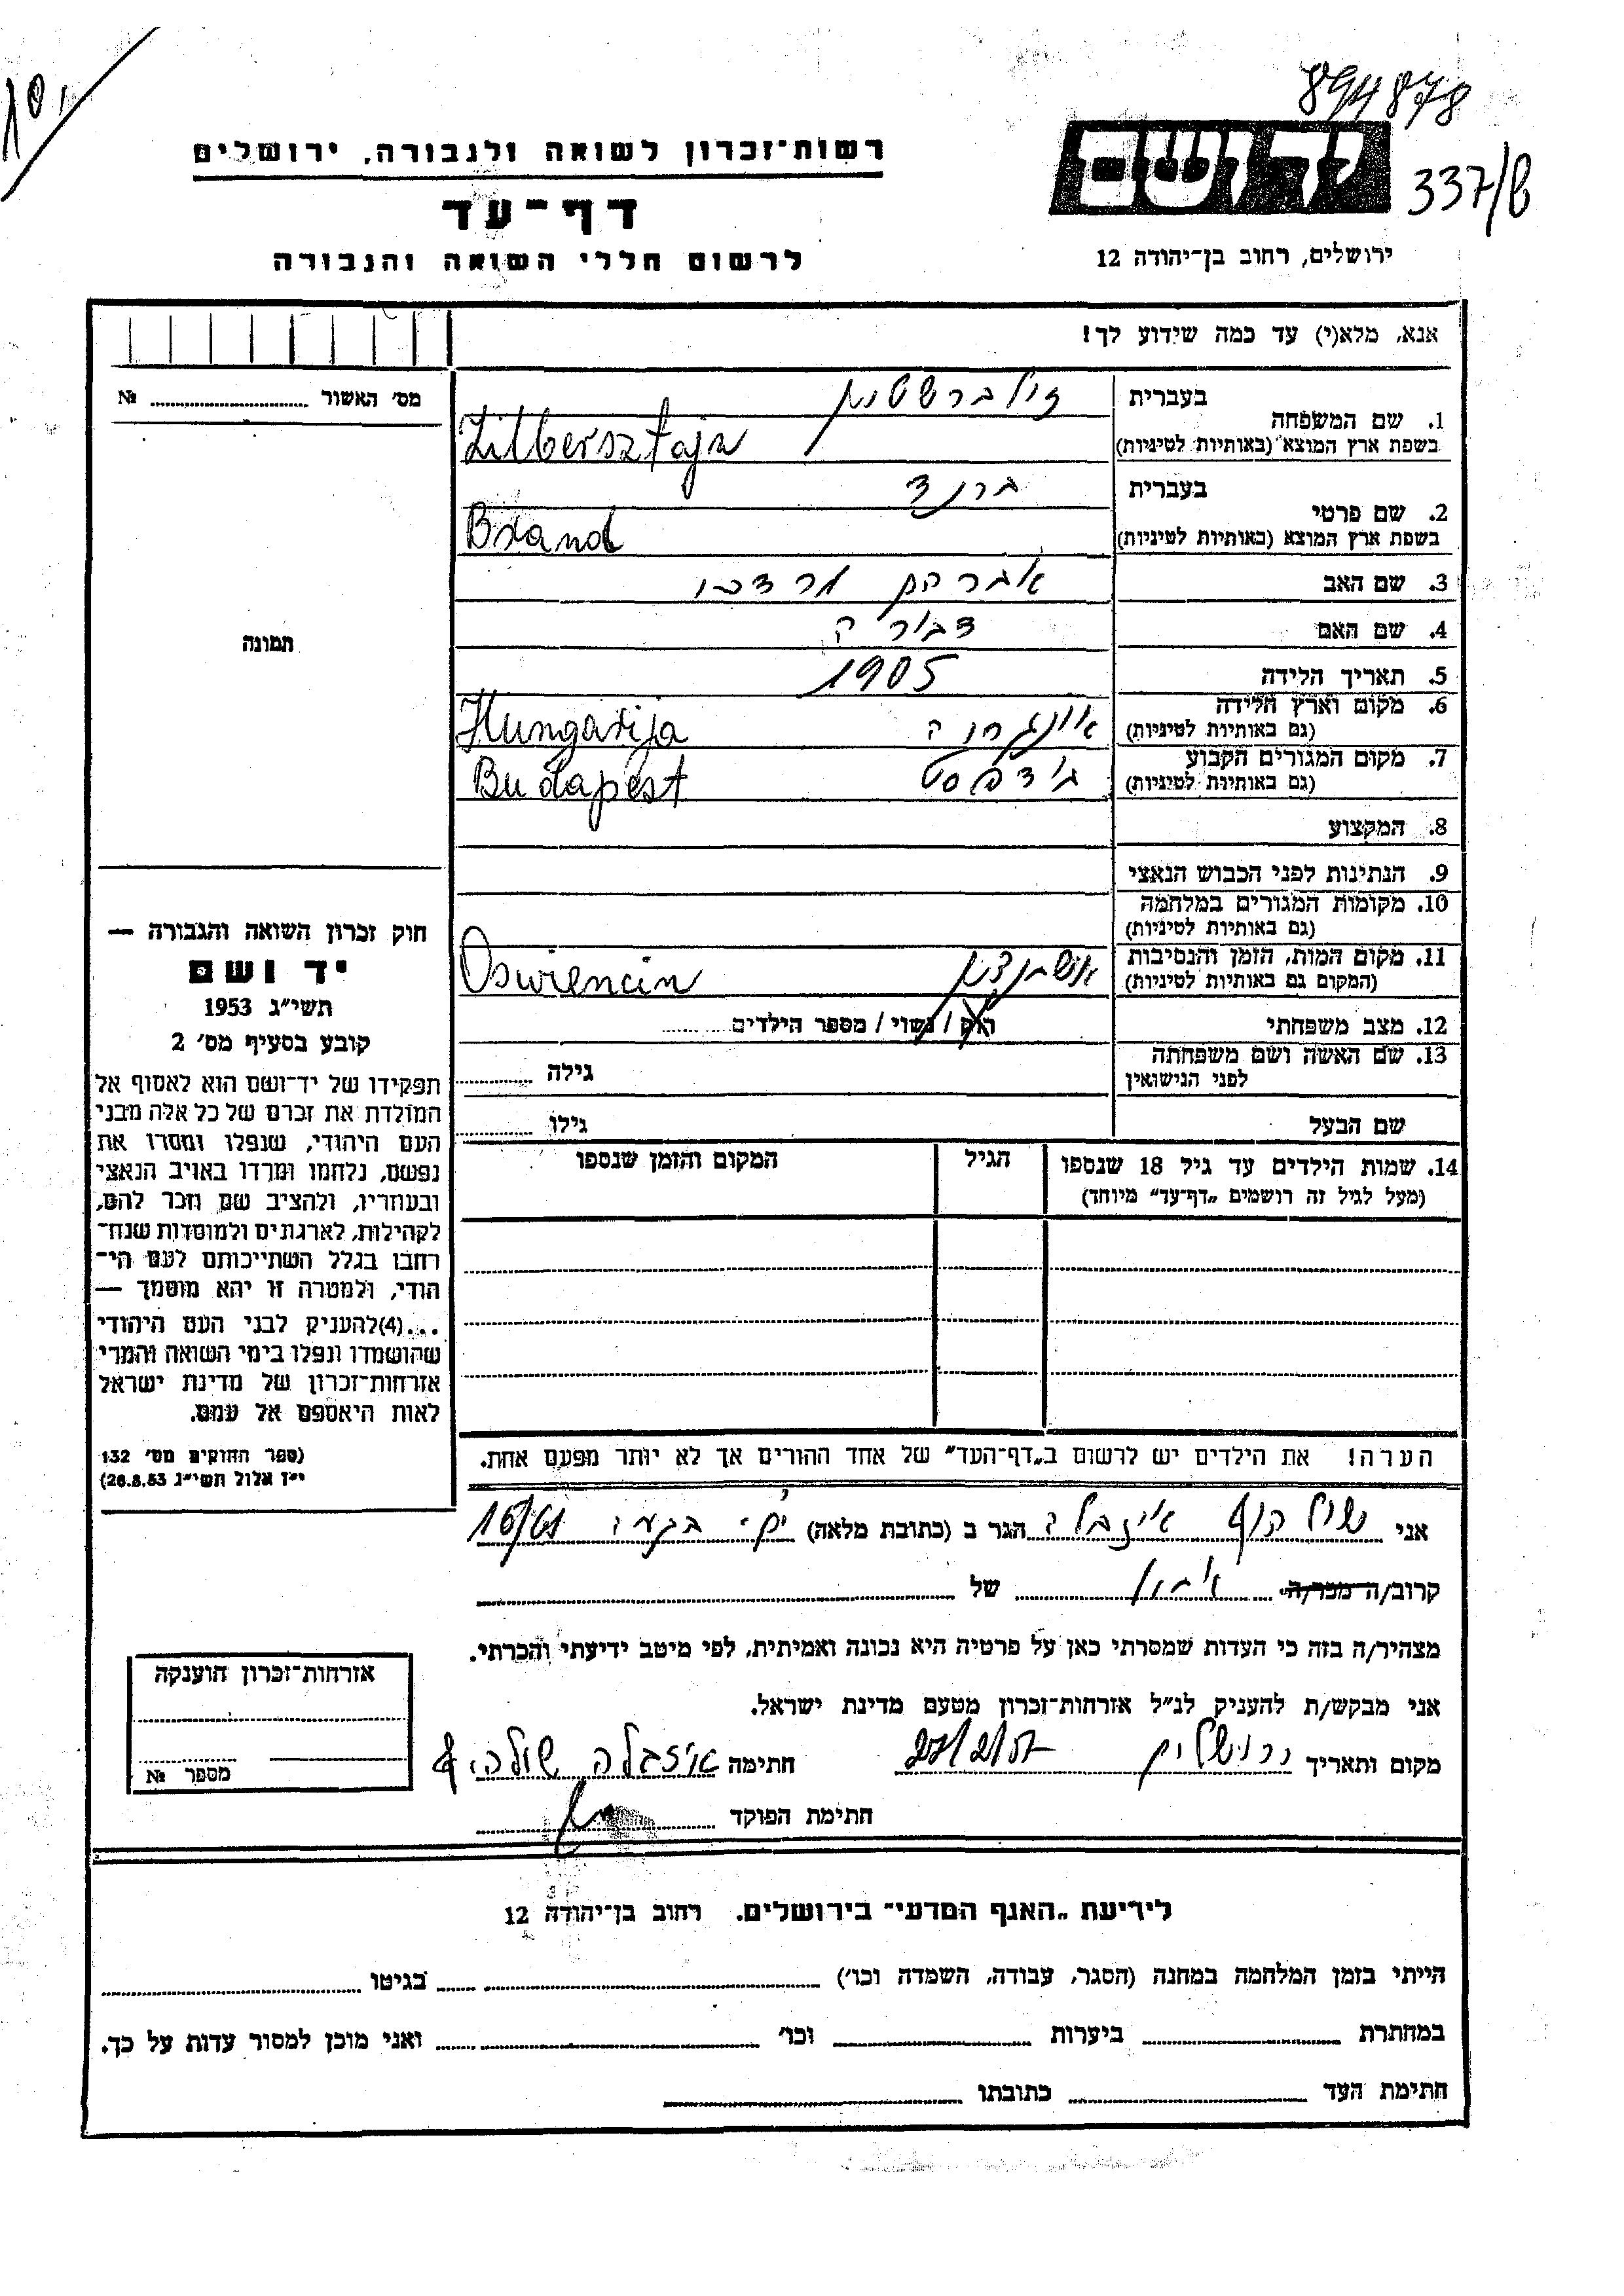 894878
רשות־זכרון לשואה ולגבורה, ירושלים
יד ושם
337/8
דף־עד
לרשום חללי השואה והגבורה
ירושלים, רחוב בן־יהודה 12
אנא, מלא(י) עד כמה שידוע לך!
מס׳ האשור № 
1. שם המשפחה
בעברית זילברשטיין
בשפת ארץ המוצא (באותיות לטיניות) Zilbersztajn
2. שם פרטי
בעברית ברנד
בשפת ארץ המוצא (באותיות לטיניות) Brand
3. שם האב אברהם מרדכי
4. שם האם דבורה
5. תאריך הלידה 1905
6. מקום וארץ הלידה
(גם באותיות לטיניות) Hungarija
7. מקום המגורים הקבוע
(גם באותיות לטיניות) בודפסט Budapest
8. המקצוע
9. הנתינות לפני הכבוש הנאצי
10. מקומות המגורים במלחמה
(גם באותיות לטיניות)
11. מקום המות, הזמן והנסיבות
(המקום גם באותיות לטיניות) Oswiencin
12. מצב משפחתי רווק / נשוי / מספר הילדים
13. שם האשה ושם משפחתה
לפני הנישואין גילה
שם הבעל גילו
14. שמות הילדים עד גיל 18 שנספו
(מעל לגיל זה רושמים „דף־עד״ מיוחד)
הגיל
המקום והזמן שנספו
תמונה
חוק זכרון השואה והגבורה —
יד ושם
תשי״ג 1953
קובע בסעיף מס׳ 2
תפקידו של יד־ושם הוא לאסוף אל
המולדת את זכרם של כל אלה מבני
העם היהודי, שנפלו ומסרו את
נפשם, נלחמו ומרדו באויב הנאצי
ובעוזריו, ולהציב שם וזכר להם,
לקהילות, לארגונים ולמוסדות שנח־
רבו בגלל השתייכותם לעם הי־
הודי, ולמטרה זו יהא מוסמך —
...(4) להעניק לבני העם היהודי
שהושמדו ונפלו בימי השואה והמרי
אזרחות־זכרון של מדינת ישראל
לאות היאספם אל עמם.
(ספר החוקים מס׳ 132
י״ז אלול תשי״ג 26.8.53)
הערה! את הילדים יש לרשום ב„דף־העד״ של אחד ההורים אך לא יותר מפעם אחת.
אני הגר ב (כתובת מלאה)
קרוב/ה מכר/ה של
מצהיר/ה בזה כי העדות שמסרתי כאן על פרטיה היא נכונה ואמיתית, לפי מיטב ידיעתי והכרתי.
אני מבקש/ת להעניק לנ״ל אזרחות־זכרון מטעם מדינת ישראל.
מקום ותאריך ירושלים חתימה
חתימת הפוקד
אזרחות־זכרון הוענקה
מספר №
לידיעת „האגף המדעי״ בירושלים. רחוב בן־יהודה 12
הייתי בזמן המלחמה במחנה (הסגר, עבודה, השמדה וכו׳) בגיטו
במחתרת ביערות וכו׳ ואני מוכן למסור עדות על כך.
חתימת העד כתובתו